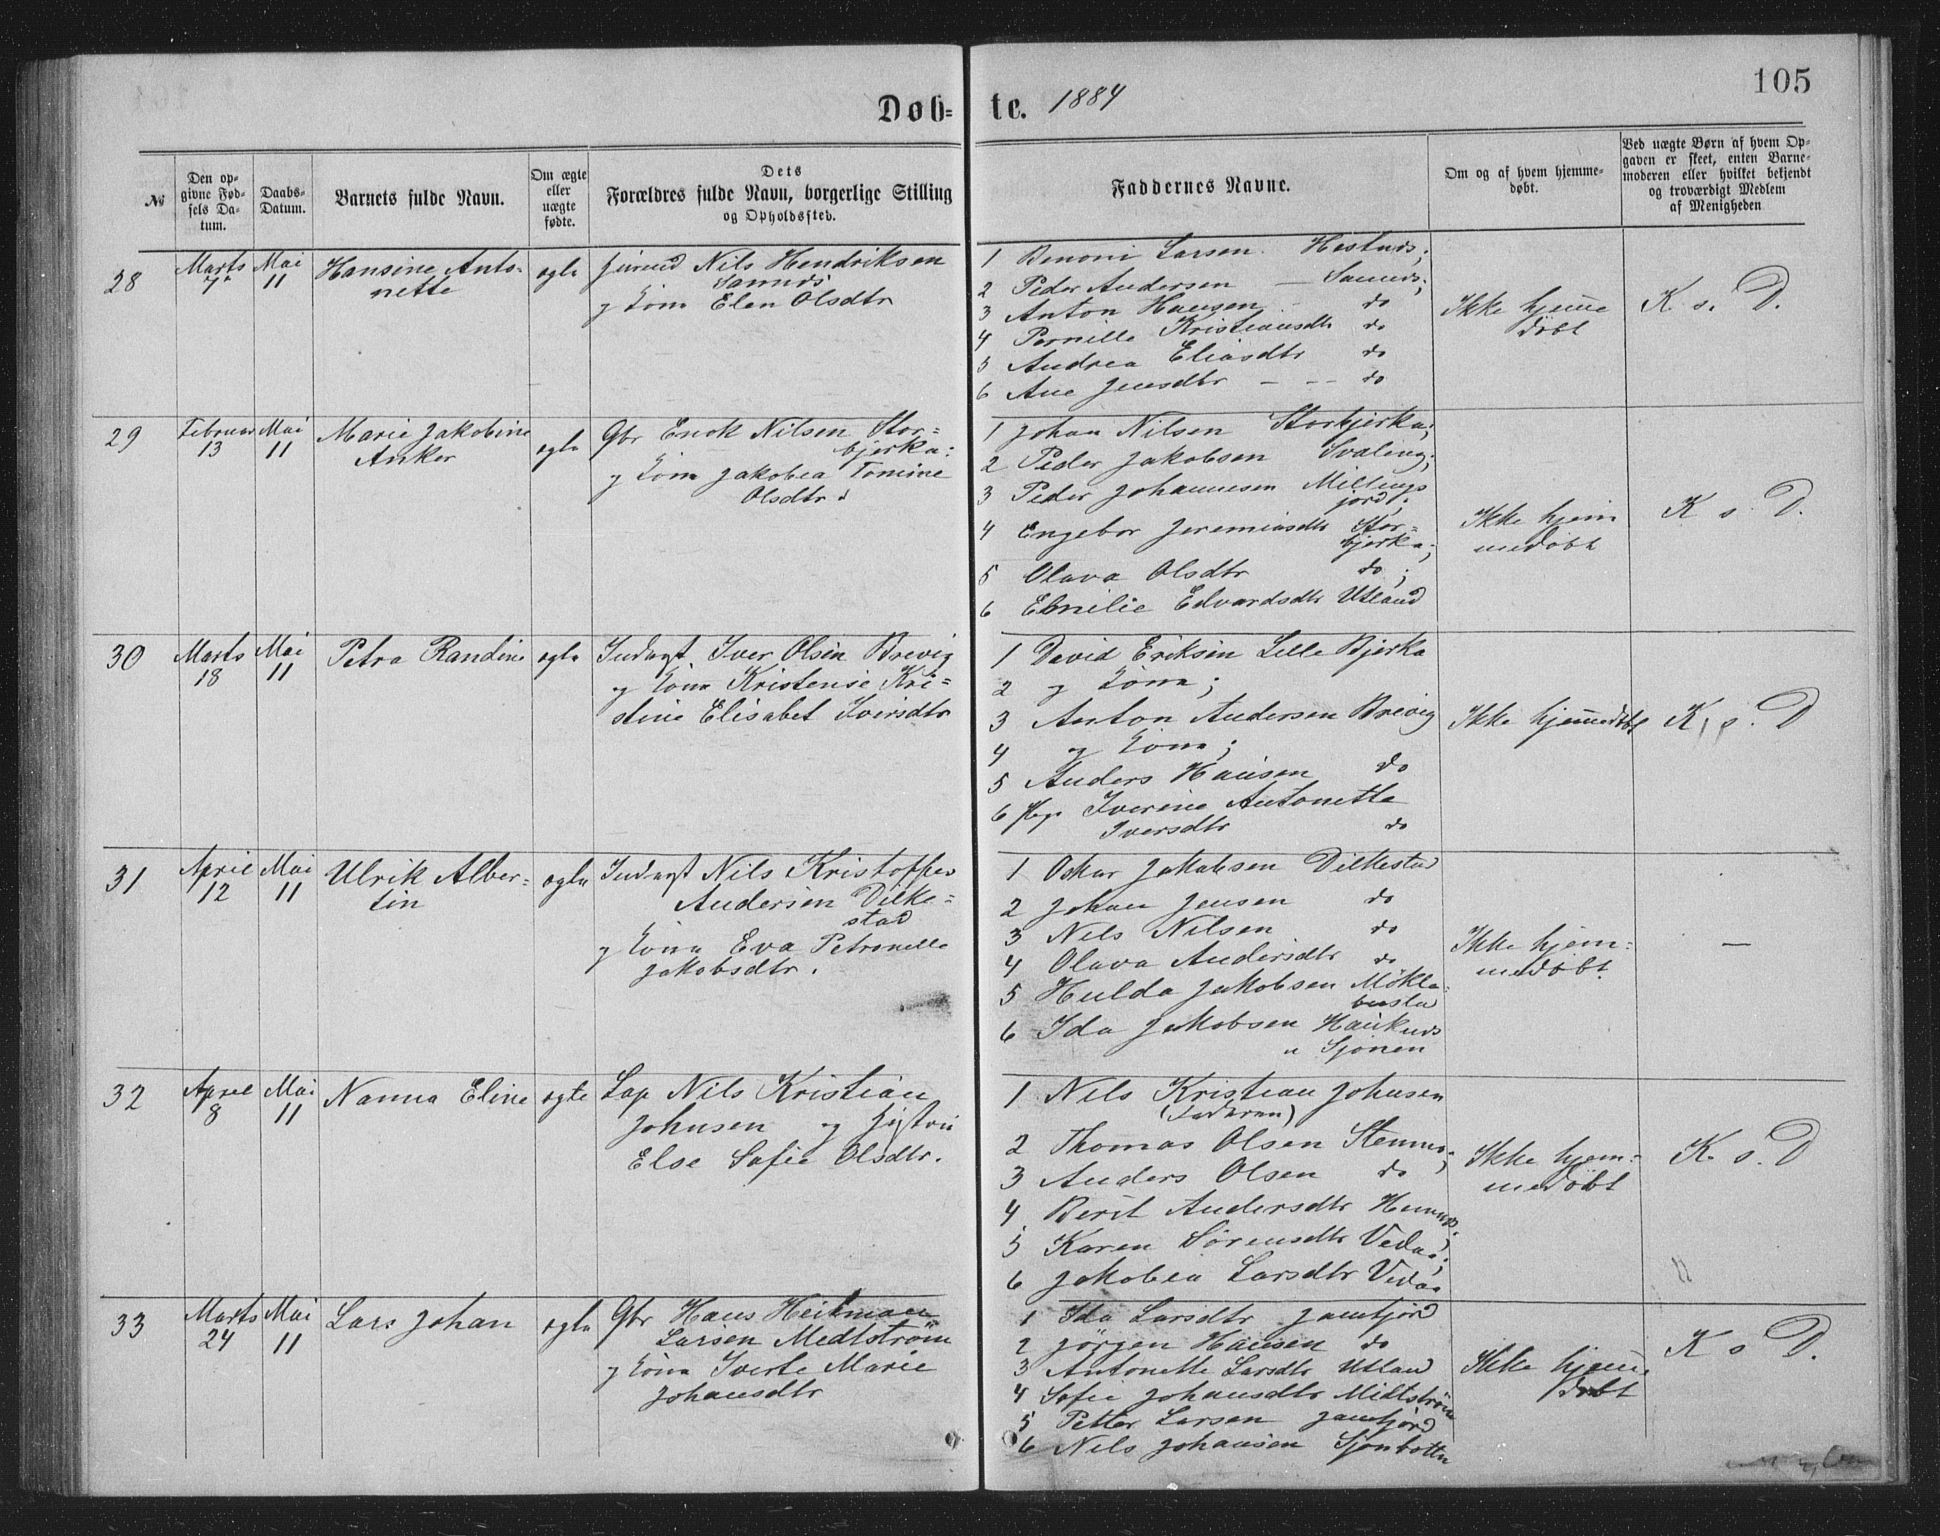 105
Døb= te. 1884
№
Den op-
givne Fød-
sels Da-
tum.
Daabs-
Datum.
Barnets fulde Navn.
Om ægte
eller
uægte
fødte.
Dets
Forældres fulde Navn, borgerlige Stilling
og Opholdssted.
Faddernes Navne.
Om og af hvem hjemme-
døbt.
Ved uægte Børn af hvem Op-
gaven er skeet, enten Barne-
moderen eller hvilket bekjendt
og troværdigt Medlem
af Menigheden
28
Marts
7
Mai
11
Hansine Anto-
nette
ægte
Nils Hendriksen
g Kona Elen Olsdtr
1 Benoni Larsen
2 Peder Andersen
3 Anton Hansen do
4 Pernille Kristiansdtr do
5 Andrea Eliasdtr do
6 Ane Jensdtr - - - do
Ikke hjemme
døbt
K s. D.
29
Februar
13
Mai
11
Marie Jakobine
Anker
ægte
Gbr Enok Nilsen Stor=
bjerka:
g Kona Jakobea Tomine
Olsdtr
1 Johan Nilsen Storbjerka;
2 Peder Jakobsen Svaling;
3 Peder Johannesen Millings
jord;
4 Engebor Jeremiasdtr Stor=
bjerka;
5 Olava Olsdtr do;
6 Emilie Edvardsdtr Utland
Ikke hjem
medøbt
K s. D.
30
Marts
18
Mai
11
Petra Randine
ægte
Inderst Iver Olsen Brevig
g Kona Kristense Kri=
stine Elisabet Iversdtr
1 David Eriksen Lille Bjerka
2 g Kona;
3 Anton Andersen Brevig
4 g Kona;
5 Anders Hansen do
6 Pge Iverine Antonette
Iversdtr do
Ikke hjemmedøbt
K s. D
31
April
12
Mai
11
Ulrik Alber=
tin
ægte
Inderst Nils Kristoffer
Andersen Dilke=
stad
g Kona Eva Petronelle
Jakobsdtr.
1 Oskar Jakobsen Dilkestad
2 Johan Jensen do
3 Nils Nilsen do
4 Olava Andersdtr do
5 Hulda Jakobsen Mökle
busta
6 Ida Jakobsen
Sjonen
Ikke hjem=
medøbt
—
32
April
8
Mai
11
Nanna Eline
ægte
Lap Nils Kristian
Johnsen g
Else Sofie Olsdtr.
1 Nils Kristian Johnsen
(Faderen)
2 Thomas Olsen
3 Anders Olsen do
4 Berit Andersdtr
5 Karen Sørensdtr Vedaa;
6 Jakobea Larsdtr Vedaa
Ikke hjem=
medøbt
K. s. D
33
Marts
24
Mai
11
Lars Johan
ægte
Gbr Hans Heitmann
Larsen Medtström
g Kona Iverte Marie
Johansdtr
1 Ida Larsdtr Jamtjord
2 Jörgen Hansen do
3 Antonette Larsdtr Utland
4 Sofie Johansdtr Midtström
5 Petter Larsen Jamtjord
6 Nils Johansen Sjonbotten
Ikke hjemme
døbt
K s D.